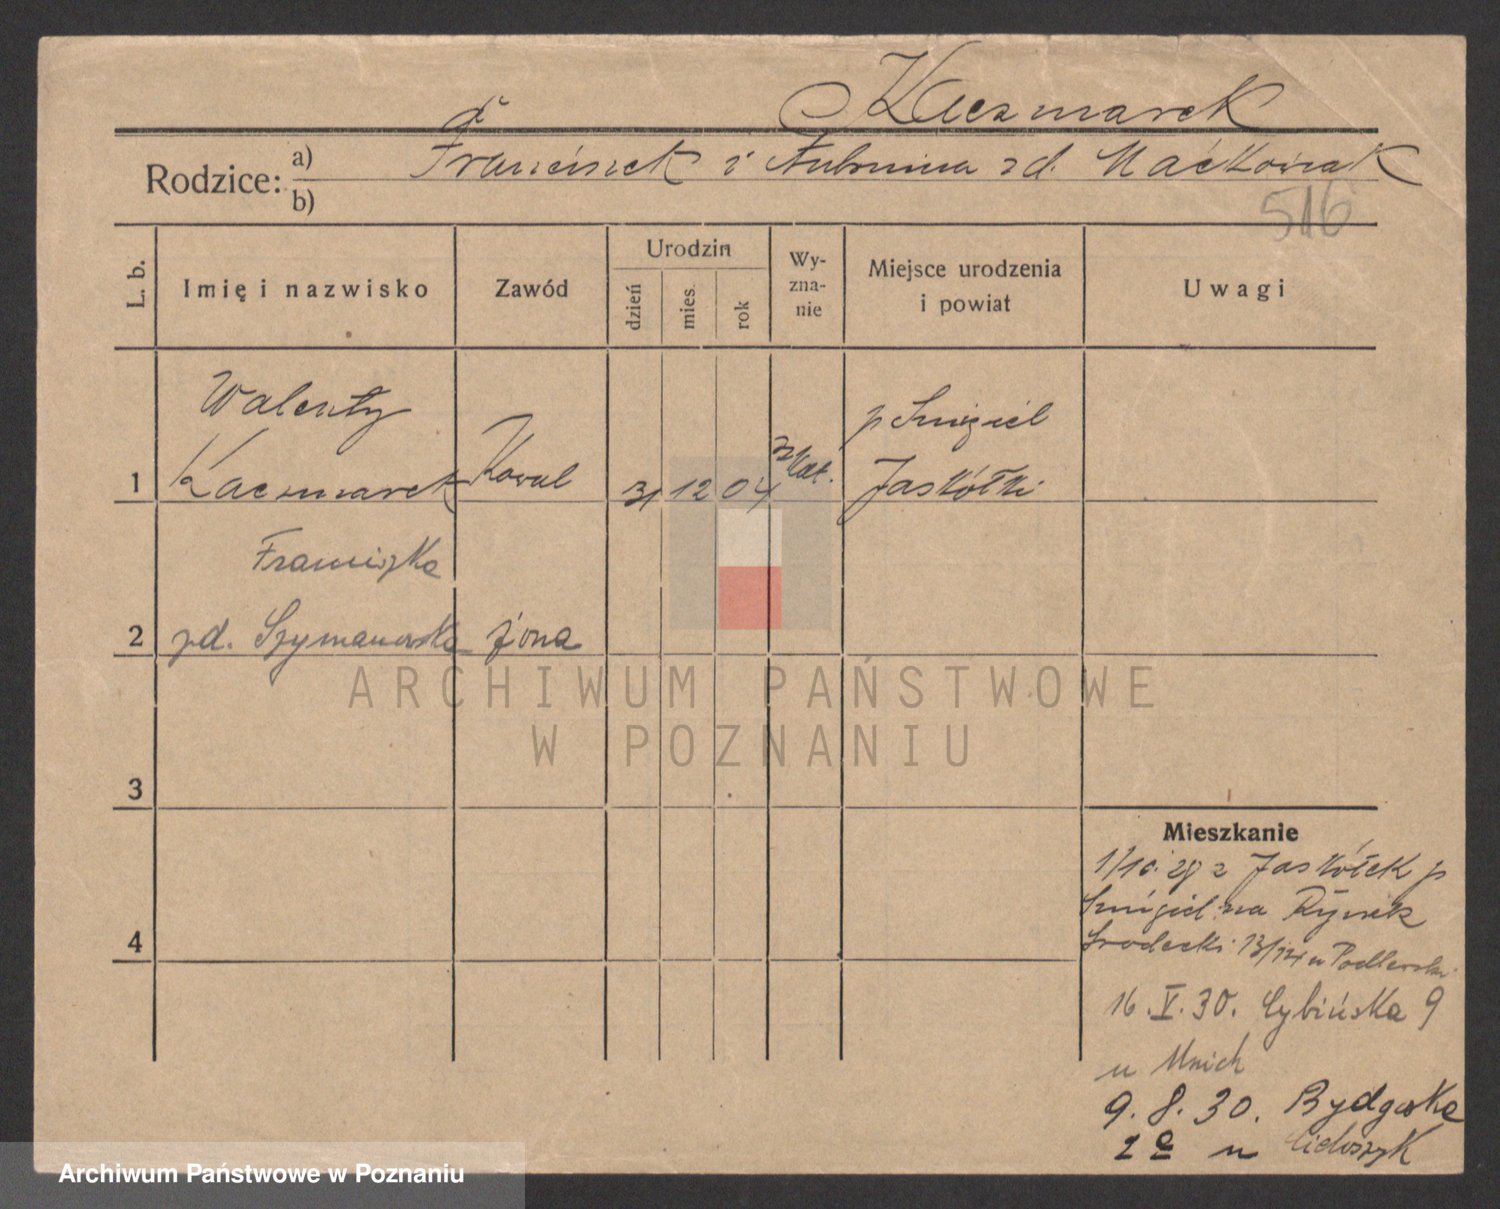 Kaczmarek
Rodzice: a) Franciszek i Antonina zd. Maćkowiak
b)
516
L. b.
Imię i nazwisko
Zawód
Urodzin
dzień
mies.
rok
Wy-
zna-
nie
Miejsce urodzenia
i powiat
Uwagi
Walenty
p Śmigiel
1 Kaczmarek Kowal 31 12 04 rz/kat. Jaskółki
Franciszka
2 zd. Szymanowska żona
ARCHIWUM PAŃSTWOWE
W POZNANIU
3
Mieszkanie
1/10. 29 z Jaskółek p
Śmigiel na Rynek
4
Środecki 13/14 u
16. V. 30. Cybińska 9
u Mnich
9. 8. 30. Bydgoska
2 e u
Archiwum Państwowe w Poznaniu